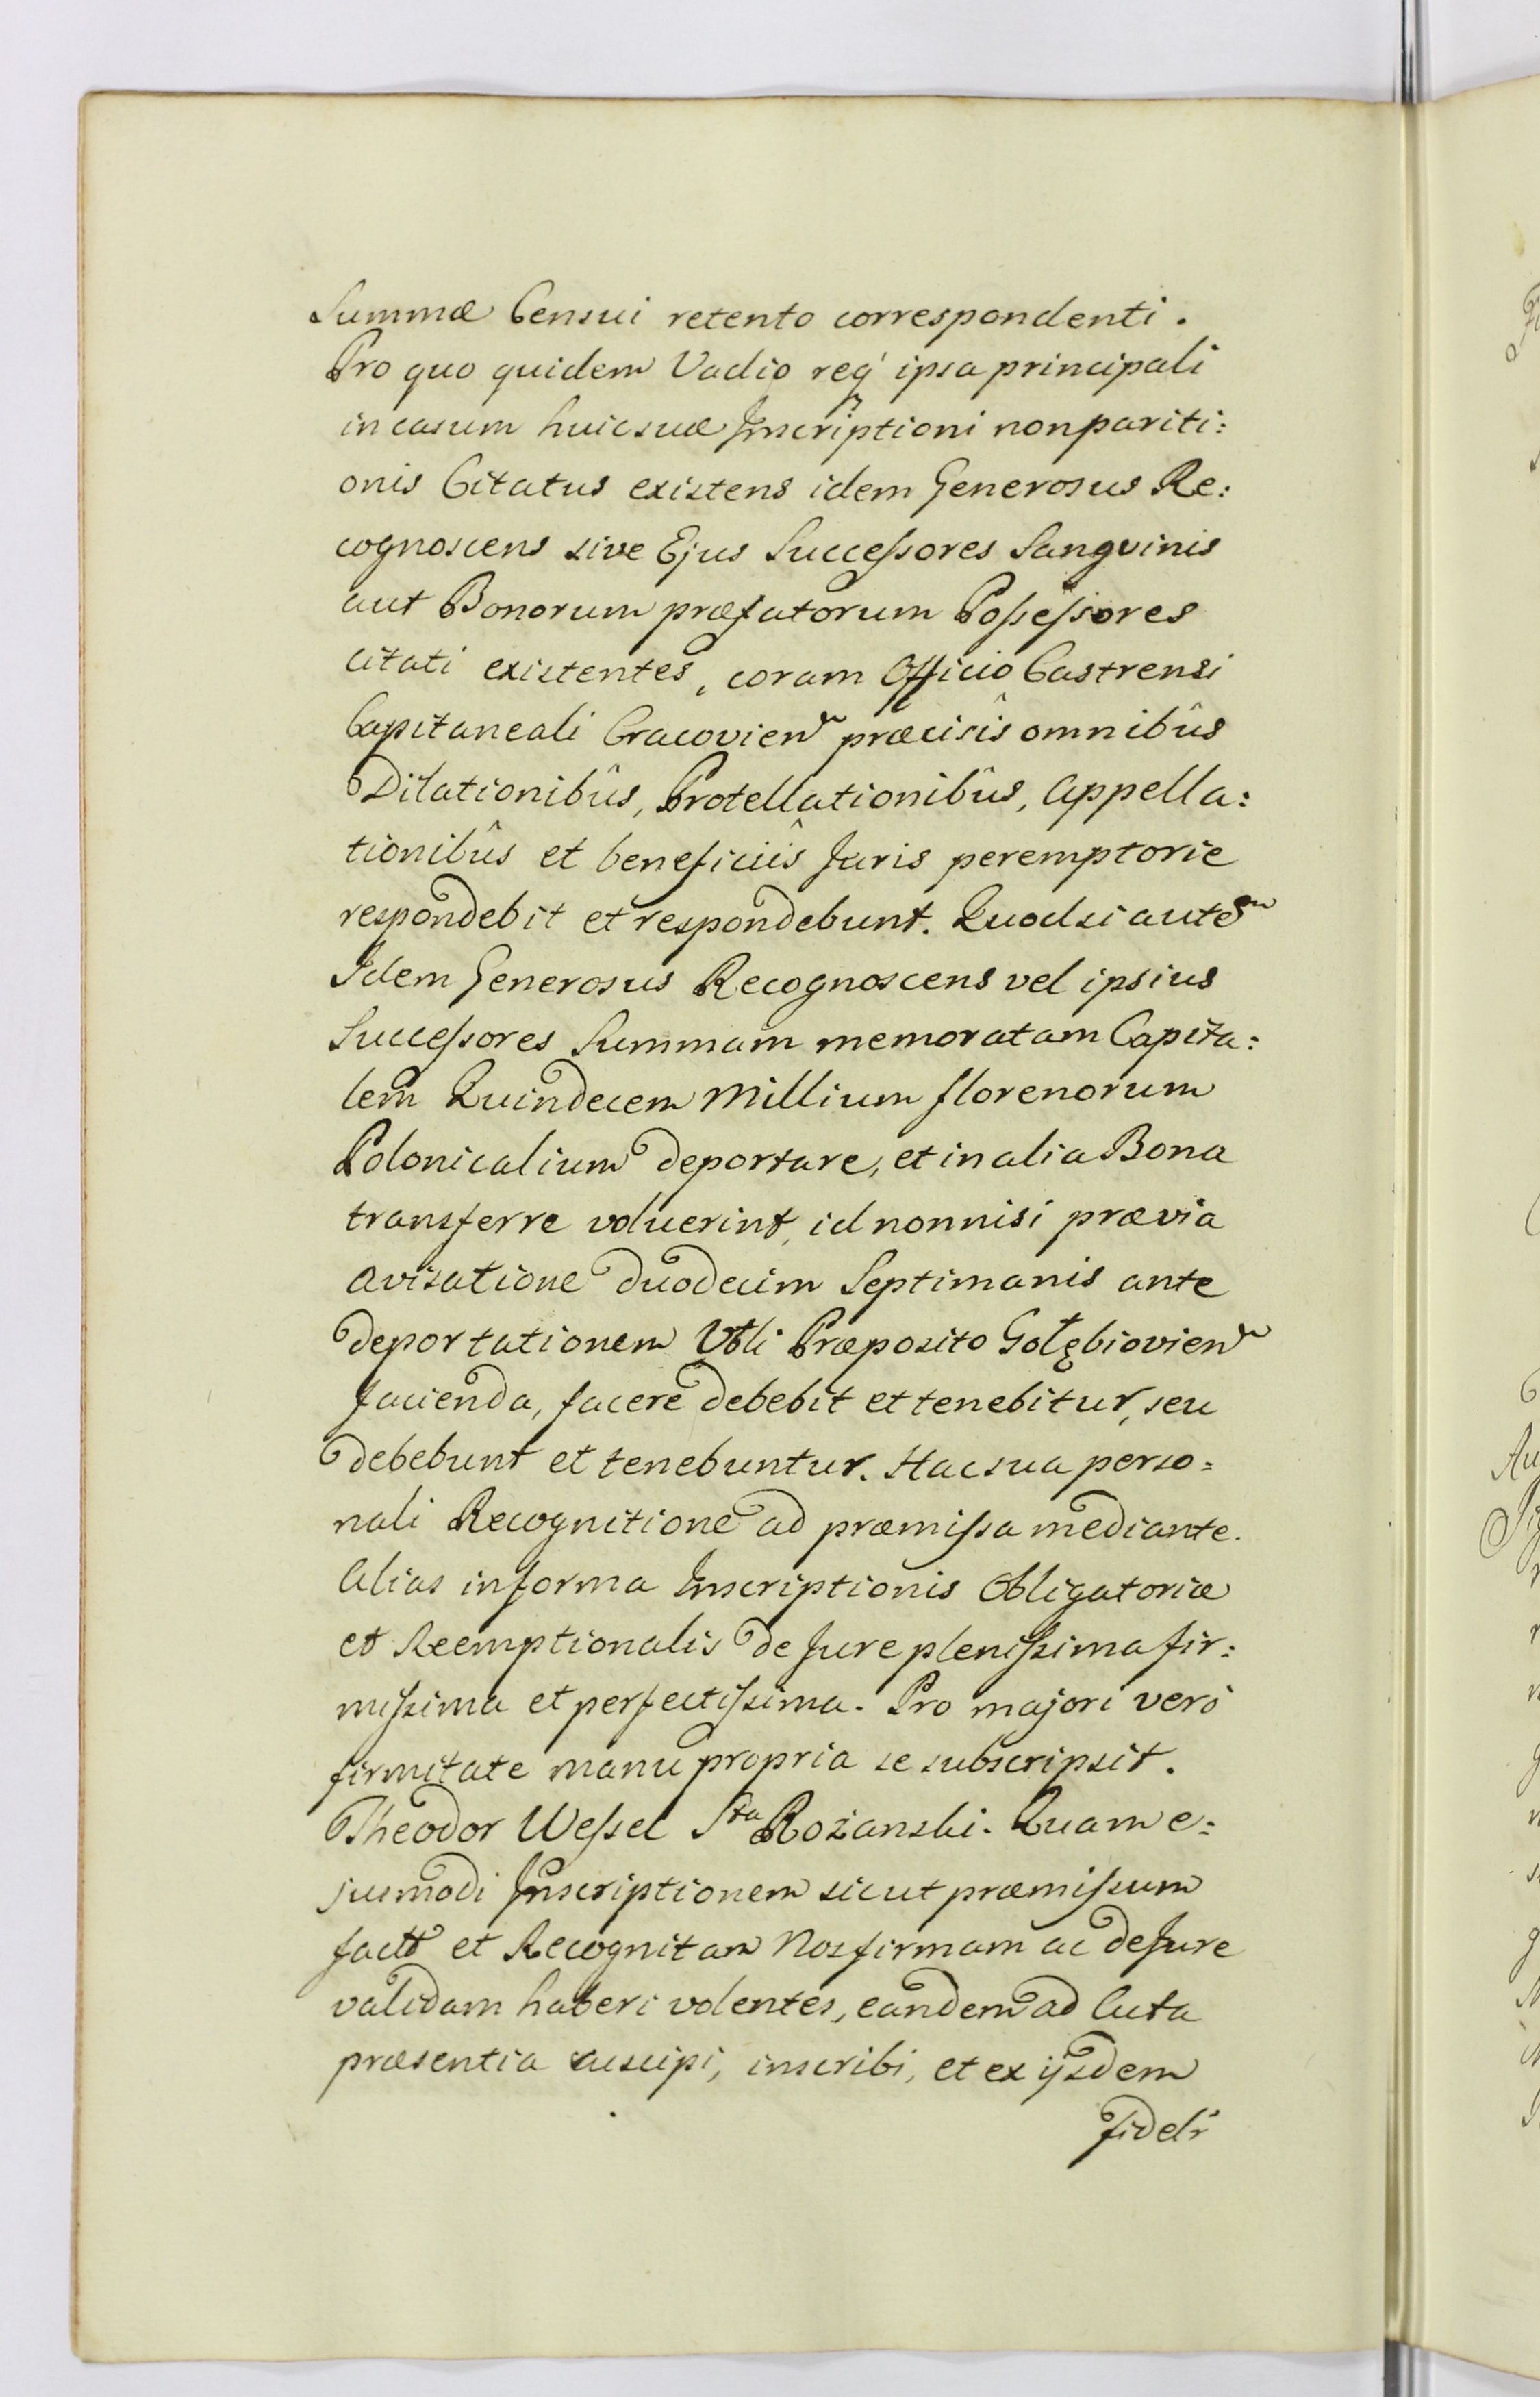 Summæ Censui retento correspondenti.
Pro quo quidem Vadio req́ ipsa principali
in casum huic suæ Inscriptioni non pariti:
onis Citatus existens idem Generosus Re:
cognoscens sive Ejus Successores Sangvinis
aut Bonorum præfatorum Possessores
citati existentes, coram Officio Castrensi
Capitaneali Cracovien præcisîs omnibûs
Dilationibûs, Protellationibûs, Appella:
tionibûs et beneficiîs Juris peremptorie
respondebit et respondebunt. Quodsi autem
Idem Generosus Recognoscens vel ipsius
Successores Summam memoratam Capita:
lem Quindecem Millium florenorum
Polonicalium deportare, et in alia Bona
transferre voluerint, id nonnisi prævia
avisatione duodecim Septimanis ante
deportationem Vbli Præposito Gołębiovien
facienda, facere debebit et tenebitur, seu
debebunt et tenebuntur. Hac sua perso=
nali Recognitione ad præmissa mediante.
Alias in forma Inscriptionis Obligatoriæ
et Reemptionalis de Jure plenissima fir:
missima et perfectissima. Pro majori verò
firmitate manu propria se subscripsit.
Theodor Wessel Sta Rożanski. Quam e:
jusmodi Inscriptionem sicut præmissum
factã et Recognitam Nos firmam ac de Jure
validam haberi volentes, eandem ad Acta
præsentia suscipi, inscribi, et ex ijsdem
fideli